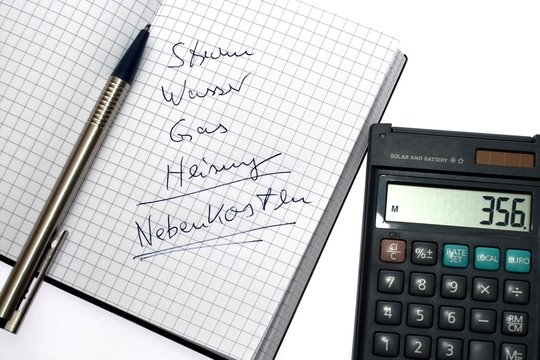 Strom
Wasser
Gas
Heizung
Nebenkosten
SOLAR AND BATTERY
M 356
ON
C/CE %± RATE SET LOCAL EURO
7 8 9 × ÷
4 5 6 - RM CM
1 2 3